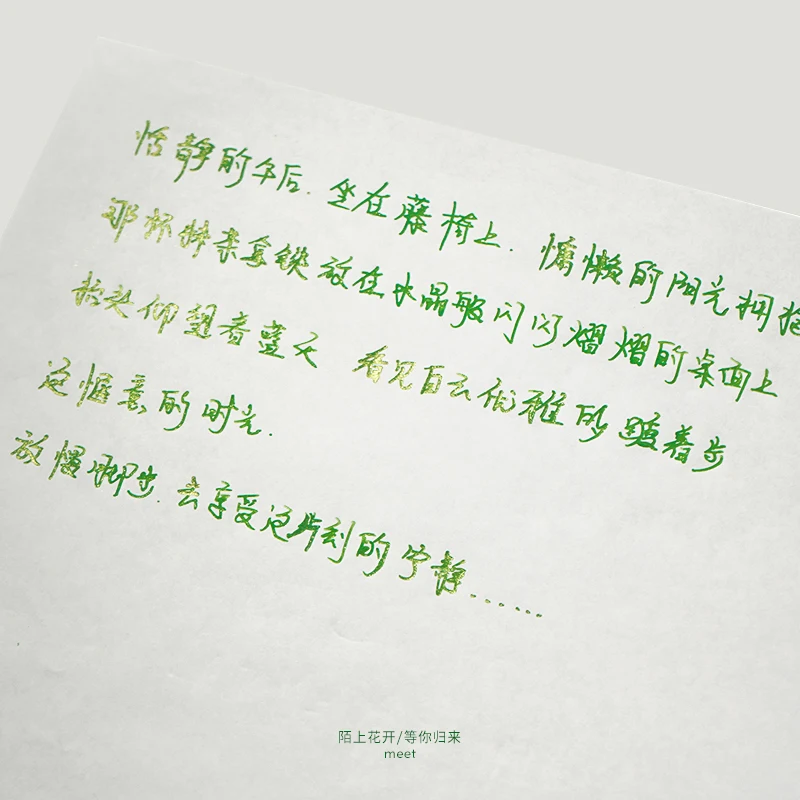 恬静的午后.坐在藤椅上.慵懒的阳光拥抱
那杯抹茶拿铁放在水晶般闪闪熠熠的桌面上
抬头仰望着蓝天 看见白云优雅的踱着步
这惬意的时光.
放慢脚步.去享受这片刻的宁静......
陌上花开/等你归来
meet